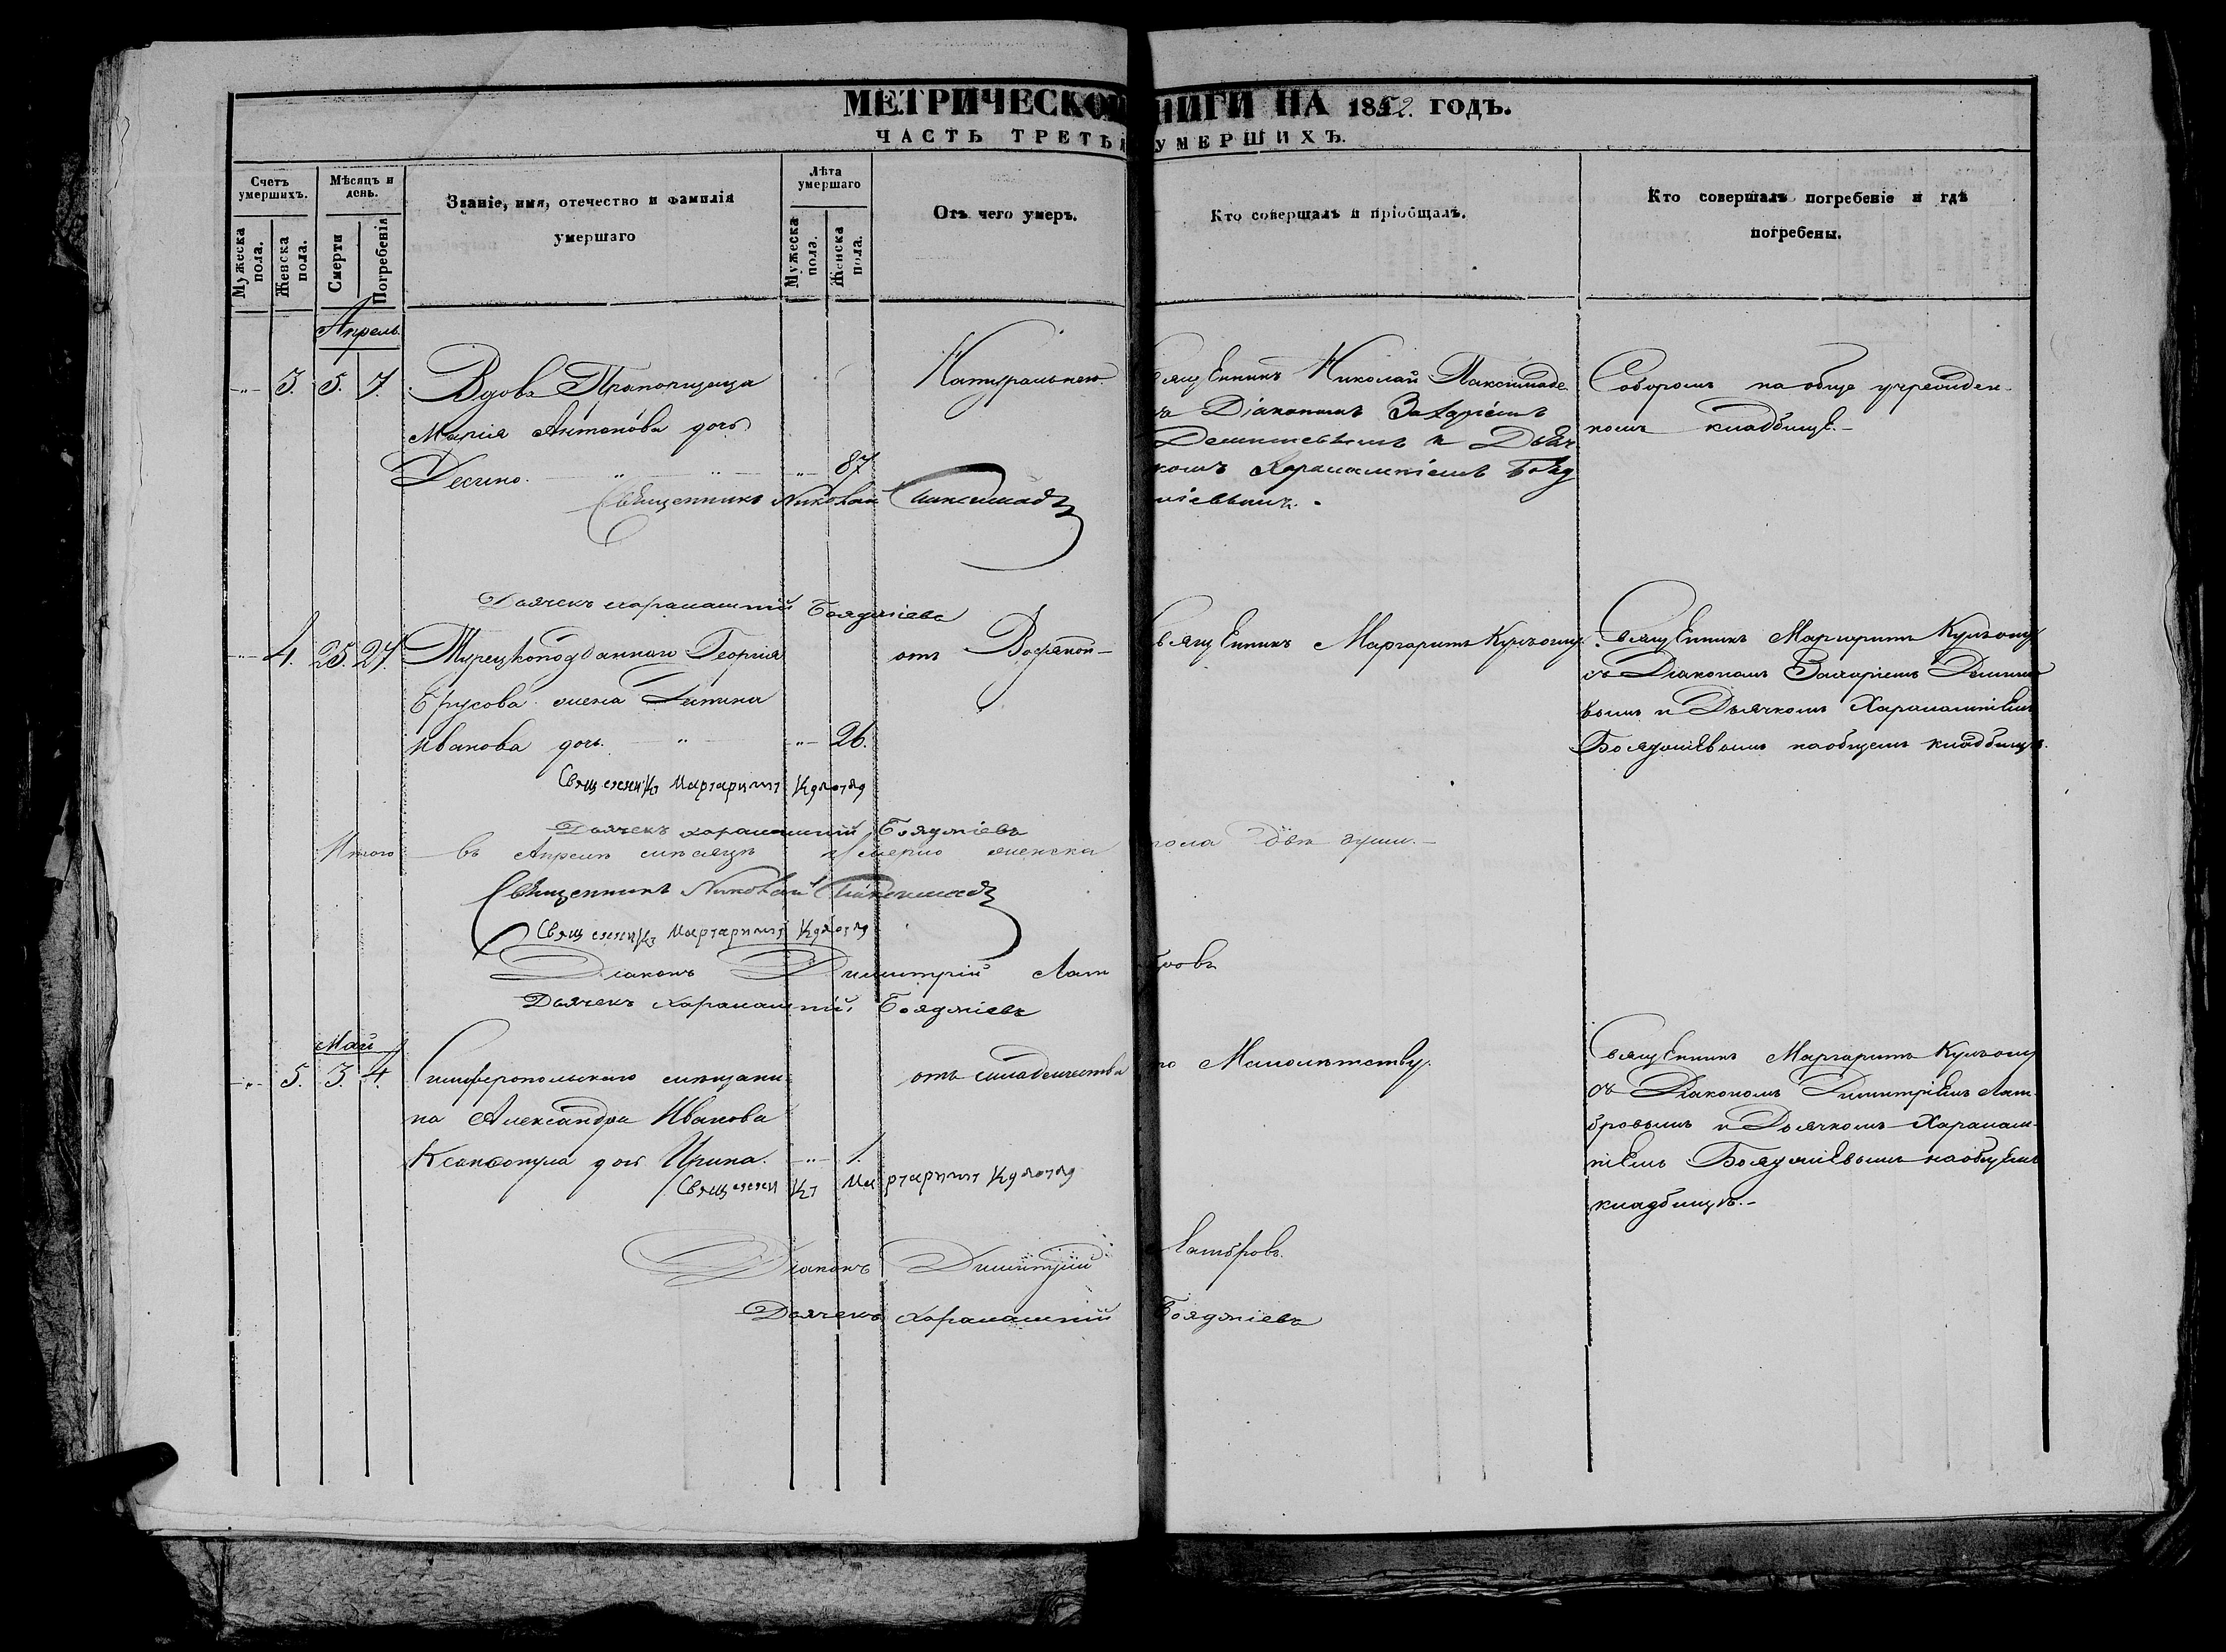 МЕТРИЧЕСКОЙ КНИГИ НА 1852. ГОДЪ.
ЧАСТЬ ТРЕТЬЯ УМЕРШИХЪ.
Счетъ умершихъ.
Мужеска пола.
Женска пола.
Мѣсяцъ и день.
Смерти
Погребенія
Званіе, имя, отечество и фамилія
умершаго
Лѣта умершаго
Мужеска пола.
Женска пола.
Отъ чего умеръ.
Кто совершалъ и пріобщалъ.
Кто совершалъ погребеніе и гдѣ
погребены.
Апрель.
3. 5. 7. Вдова Прапорщица
Марія Антонова дочь
87
Натуральною.
Священникъ Николай
Діакономъ Захаріемъ
и Дьяч
комъ Харалампіемъ Бояд
жіевымъ.
Соборомъ на обще учрежден-
номъ кладбищѣ.-
Священникъ Николай
Дьячекъ Харалампій Бояджіевъ
4. 25. 27. Турецкоподданнаго Георгія
жена
Иванова дочь. 26.
отъ
Священникъ Маргаритъ
Священникъ Маргаритъ
съ Діакономъ Захаріемъ
вымъ и Дьячкомъ Харалампіемъ
Бояджіевымъ на общемъ кладбищѣ.
Священникъ Маргаритъ
Дьячекъ Харалампій Бояджіевъ
Итого въ Апрелѣ мѣсяцѣ умерло женска пола двѣ души.-
Священникъ Николай
Священникъ Маргаритъ
Діаконъ Димитрій
Дьячекъ Харалампій Бояджіевъ
Май
5. 3. 4. Симферопольскаго мѣщани-
на Александра Иванова
дочь Ирина. 1.
отъ младенчества
по Малолѣтству.
Священникъ Маргаритъ
съ Діакономъ Димитріемъ Лам-
бровымъ и Дьячкомъ Харалам-
піемъ Бояджіевымъ на общемъ
кладбищѣ.-
Священникъ Маргаритъ
Діаконъ Димитрій Ламбровъ.
Дьячекъ Харалампій Бояджіевъ